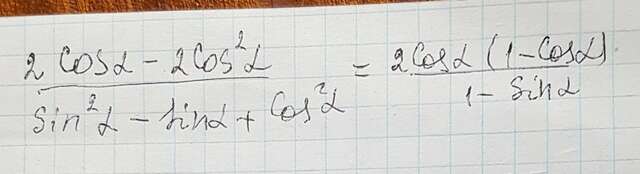 2 Cosα - 2Cos²α / Sin²α - Sinα + Cos²α = 2Cosα (1 - Cosα) / 1 - Sinα